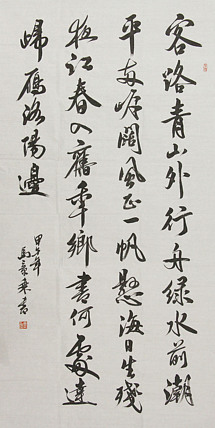 客路青山外行舟綠水前潮
平兩岸闊風正一帆懸海日生殘
夜江春入舊年鄉書何處達
歸雁洛陽邊
甲午年